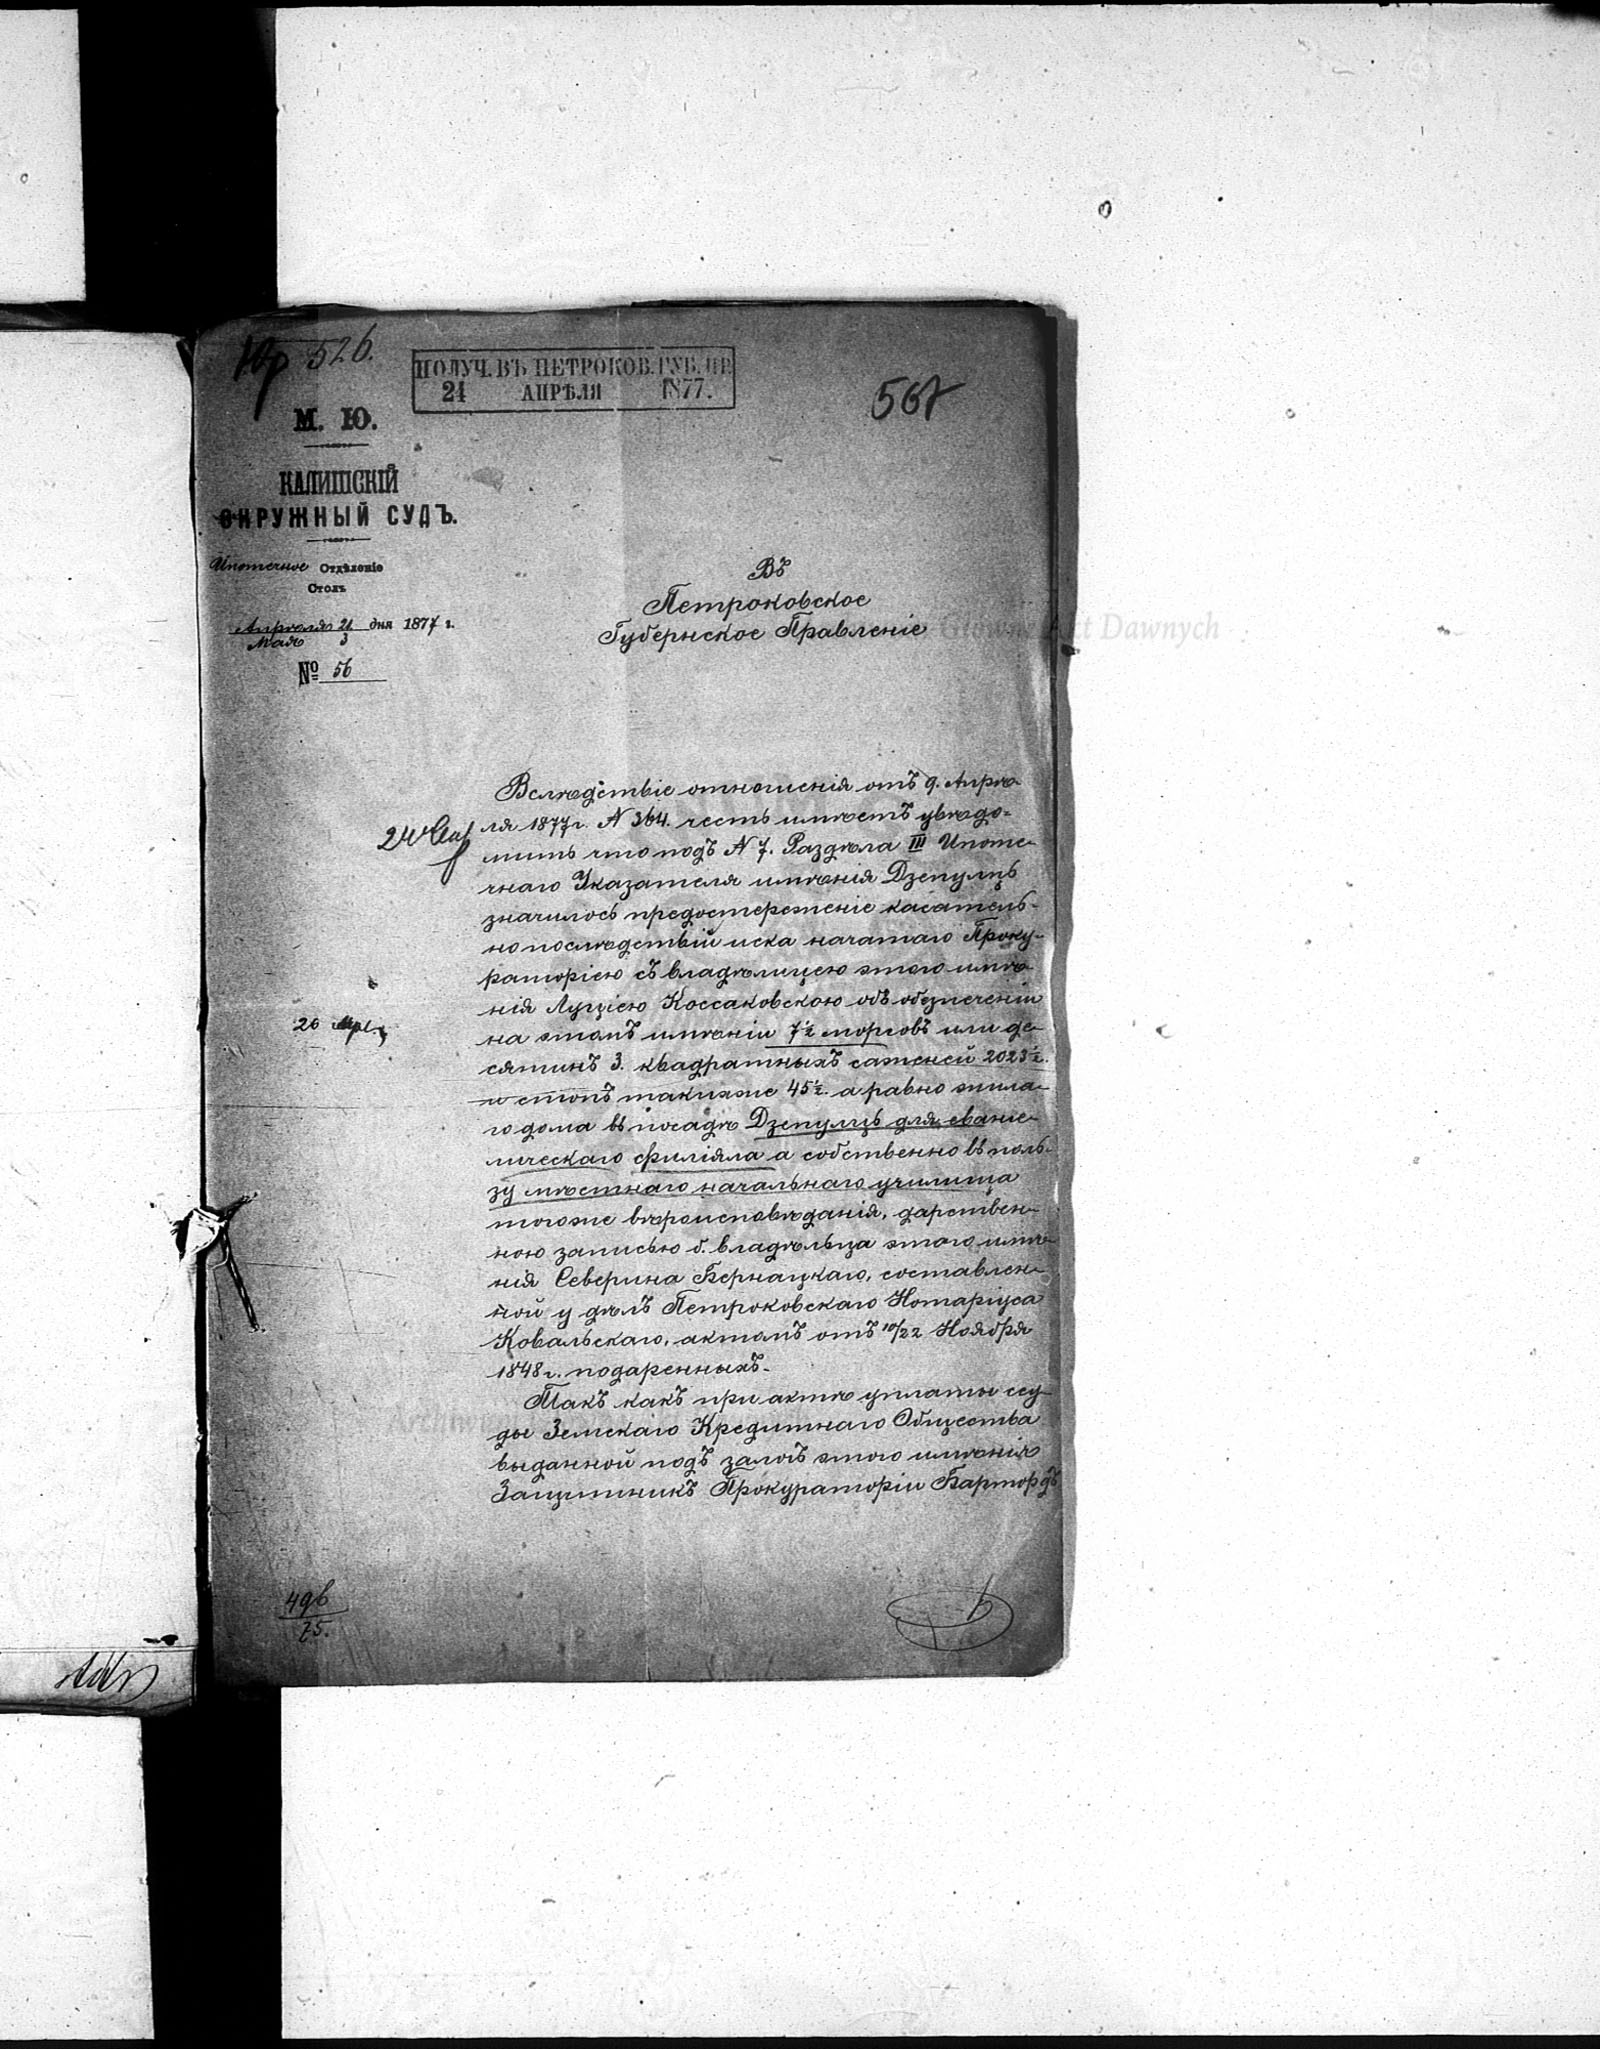 Юр 526.
ПОЛУЧ. ВЪ ПЕТРОКОВ. ГУБ. ПР
24 АПРѢЛЯ 1877.
567
М. Ю.
КАЛИШСКІЙ
ОКРУЖНЫЙ СУДЪ.
Ипотечное Отдѣленіе
Столъ
Апрѣля 21 дня 1877 г.
Мая 3
№ 56
Въ
Петроковское
Губернское Правленіе
Główne Akt Dawnych
Вслѣдствіе отношенія отъ 9. Апрѣ-
ля 1877 г. N 364. честь имѣетъ увѣдо-
мить что подъ N 7. Раздѣла III Ипоте-
чнаго Указателя имѣнія Дзепулць
значилось предостереженіе касатель-
но послѣдствій иска начатаго Проку-
раторіею съ владѣлицею этого имѣ-
нія Луціею Коссаковскою объ обезпеченіи
на этомъ имѣніи 7½ морговъ или де-
сятинъ 3. квадратныхъ саженей 2023½.
и стопъ такихже 45½. а равно жила-
го дома въ посадѣ Дзепулць для еванге-
лическаго филіяла а собственно въ поль-
зу мѣстнаго начальнаго училища
тогоже вѣроисповѣданія, дарствен-
ною записью б. владѣльца этого имѣ-
нія Северина Бернацкаго, составлен-
ной у дѣлъ Петроковскаго Нотаріуса
Ковальскаго, актомъ отъ 10/22 Ноября
1848 г. подаренныхъ.
Такъ какъ при актѣ уплаты ссу-
ды Земскаго Кредитнаго Общества
выданной подъ залогъ этого имѣнія
Защитникъ Прокураторіи Бартордъ
26 Апрѣл.
496
75.